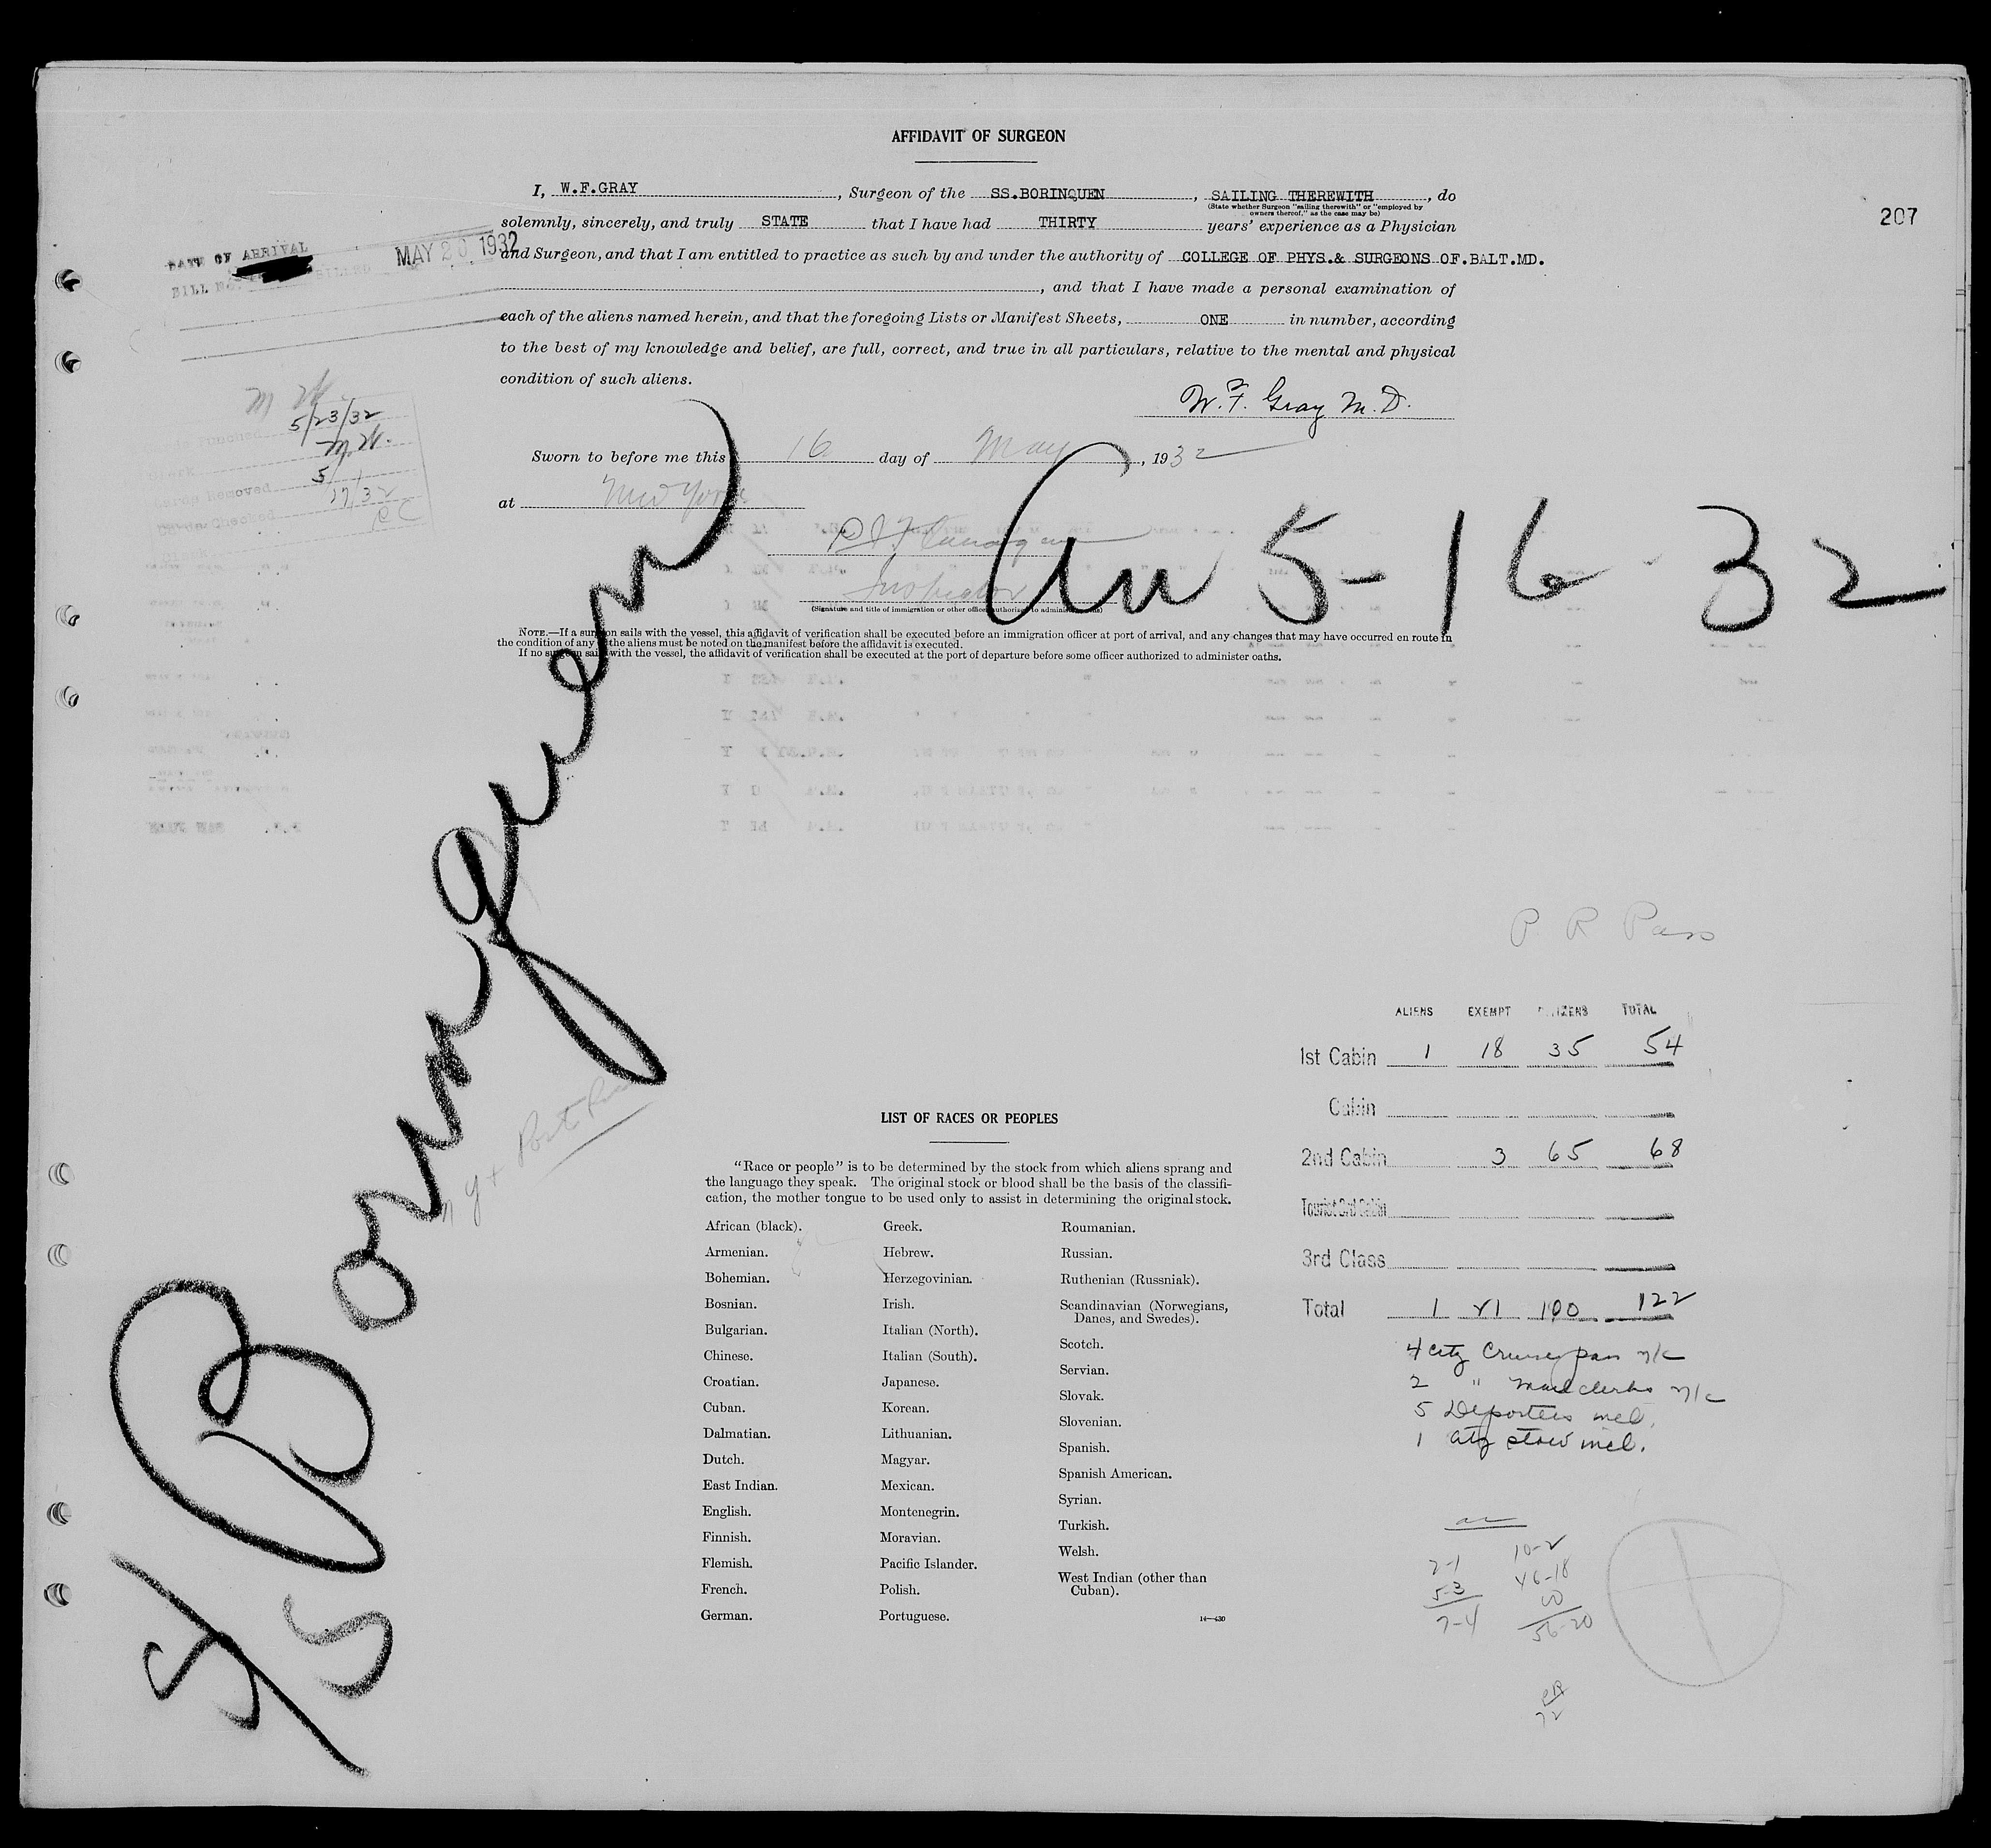 AFFIDAVIT OF SURGEON
I, W.F.GRAY, Surgeon of the SS.BORINQUEN, SAILING THEREWITH, do
(State whether Surgeon "sailing therewith" or "employed by
owners thereof," as the case may be)
207
solemnly, sincerely, and truly STATE that I have had THIRTY years' experience as a Physician
DATE OF ARRIVAL MAY 20 1932
and Surgeon, and that I am entitled to practice as such by and under the authority of COLLEGE OF PHYS.& SURGEONS OF.BALT.MD.
BILL NO.
, and that I have made a personal examination of
each of the aliens named herein, and that the foregoing Lists or Manifest Sheets, ONE in number, according
to the best of my knowledge and belief, are full, correct, and true in all particulars, relative to the mental and physical
condition of such aliens.
W. F. Gray M. D.
M W.
5/23/32
M.W.
Removed 5/
17/32
Checked
Sworn to before me this 16 day of May, 1932
at New York
Inspector
(Signature and title of immigration or other officer authorized to administer oaths)
Arr 5-16-32
NOTE.—If a surgeon sails with the vessel, this affidavit of verification shall be executed before an immigration officer at port of arrival, and any changes that may have occurred en route in
the condition of any of the aliens must be noted on the manifest before the affidavit is executed.
If no surgeon sails with the vessel, the affidavit of verification shall be executed at the port of departure before some officer authorized to administer oaths.
S/S Borinquen
P R Pass
ALIENS EXEMPT CITIZENS TOTAL
1st Cabin 1 18 35 54
Cabin
2nd Cabin 3 65 68
Tourist 3rd Cabin
3rd Class
Total 1 21 100 122
4 ctz Cruise pass n/c
2 " Mail clerks n/c
5 Deportees incl.
1 ctz stow incl.
2-1 10-2
5-3 46-18
7-4 56-20
PR
72
LIST OF RACES OR PEOPLES
"Race or people" is to be determined by the stock from which aliens sprang and
the language they speak. The original stock or blood shall be the basis of the classifi-
cation, the mother tongue to be used only to assist in determining the original stock.
African (black).
Armenian.
Bohemian.
Bosnian.
Bulgarian.
Chinese.
Croatian.
Cuban.
Dalmatian.
Dutch.
East Indian.
English.
Finnish.
Flemish.
French.
German.
Greek.
Hebrew.
Herzegovinian.
Irish.
Italian (North).
Italian (South).
Japanese.
Korean.
Lithuanian.
Magyar.
Mexican.
Montenegrin.
Moravian.
Pacific Islander.
Polish.
Portuguese.
Roumanian.
Russian.
Ruthenian (Russniak).
Scandinavian (Norwegians,
Danes, and Swedes).
Scotch.
Servian.
Slovak.
Slovenian.
Spanish.
Spanish American.
Syrian.
Turkish.
Welsh.
West Indian (other than
Cuban).
14—430